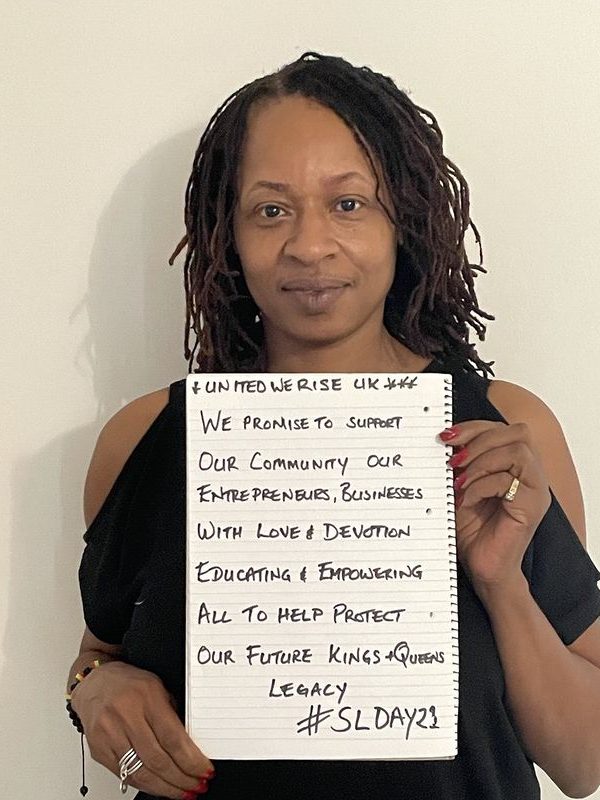 * UNITED WE RISE UK ***
WE PROMISE TO SUPPORT
OUR COMMUNITY OUR
ENTREPRENEURS, BUSINESSES
WITH LOVE & DEVOTION
EDUCATING & EMPOWERING
ALL TO HELP PROTECT
OUR FUTURE KINGS + QUEENS
LEGACY
#SLDAY21